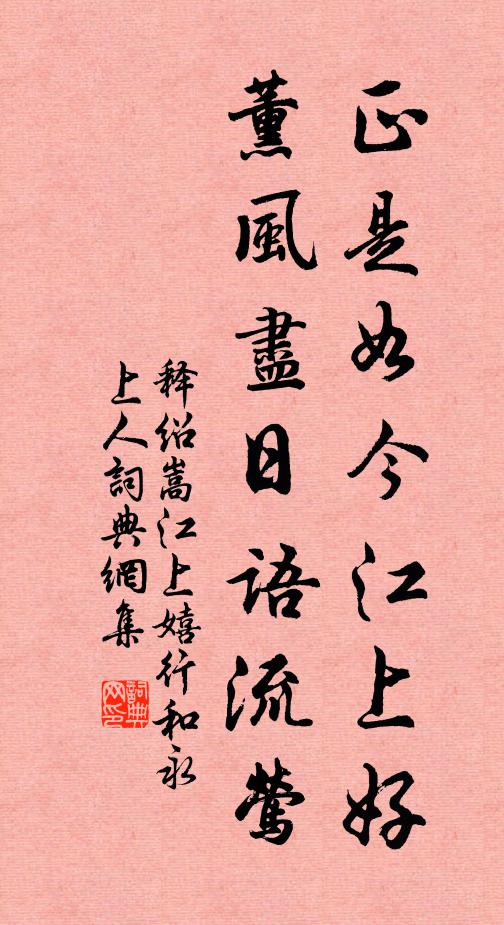 正是如今江上好
薰風盡日語流鶯
释绍嵩江上嬉行和永
上人詞典網集
詞典网印